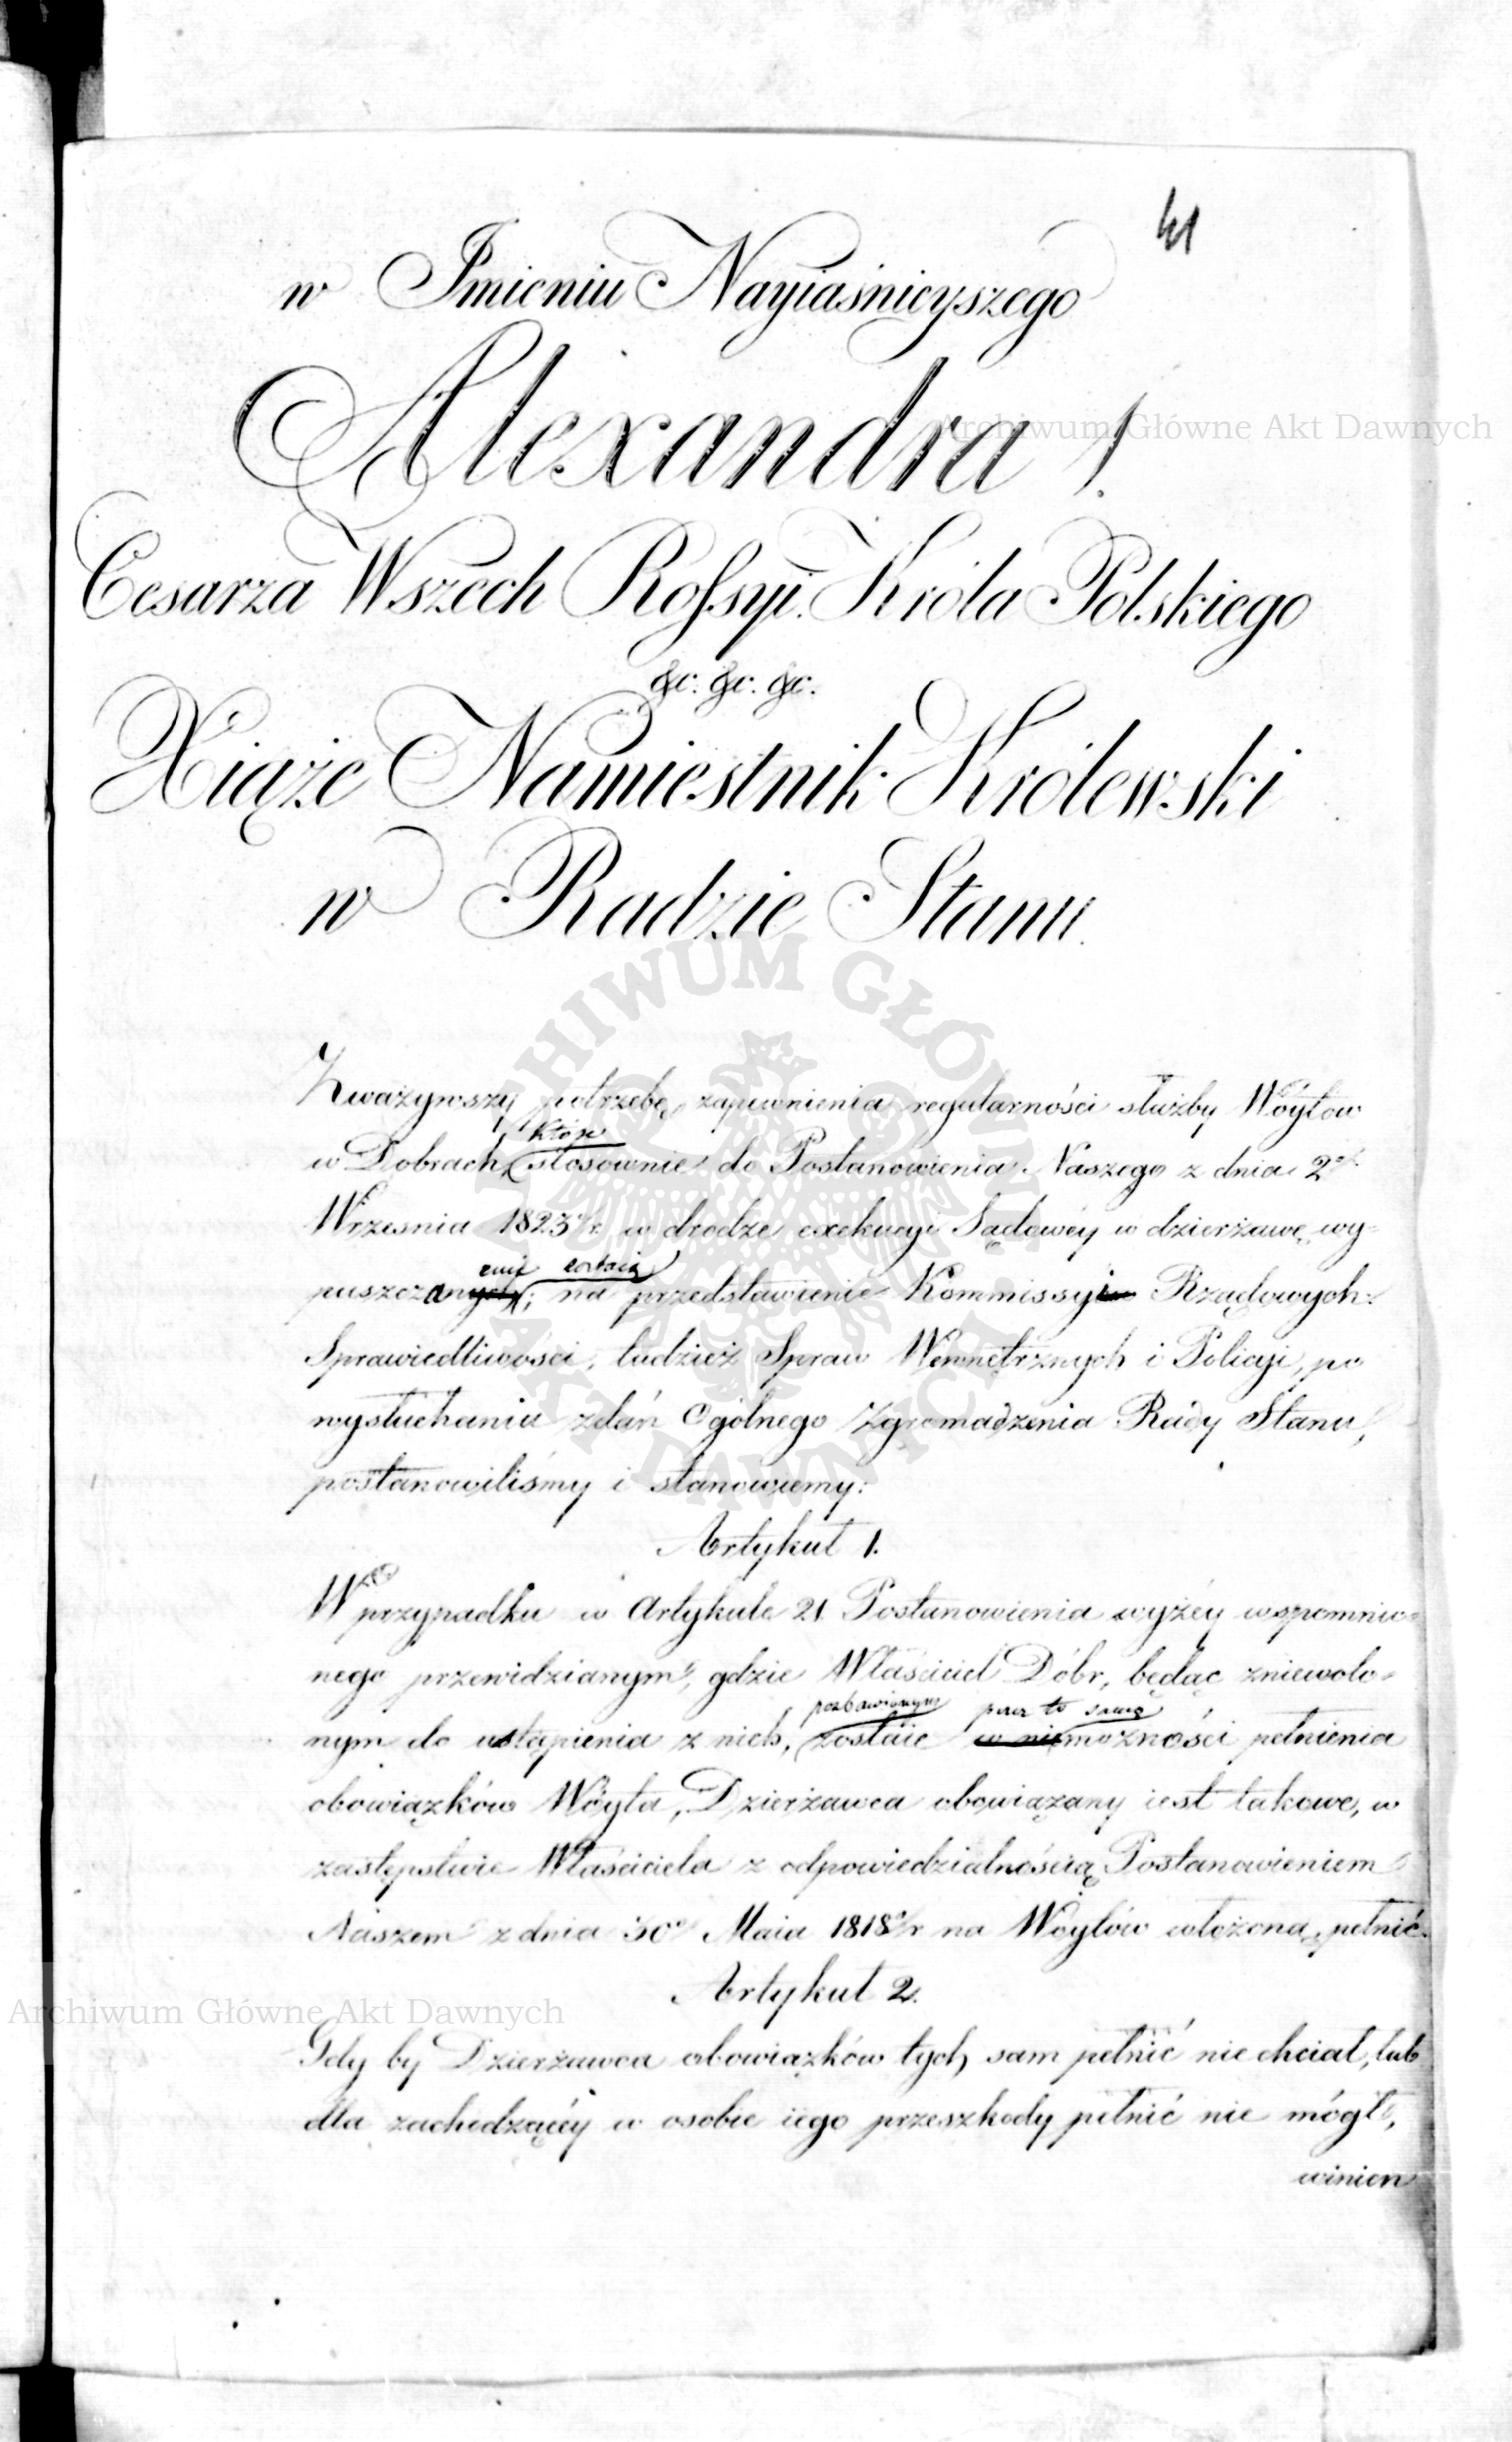 41
w Imieniu Nayiaśnieyszego
Alexandra I.
Cesarza Wszech Rossyi. Króla Polskiego
&c. &c. &c.
Xiąże Namiestnik Królewski
w Radzie Stanu.
Zważywszy potrzebę zapewnienia regularności służby Wóytow
które
w Dobrach, stosownie do Postanowienia Naszego z dnia 2go
Wrzesnia 1823 r. w drodze exekucyi Sądowéy w dzierżawę wy-
zostaią
puszczanych; na przedstawienie Kommissyi Rządowych:
Sprawiedliwości, tudzież Spraw Wewnętrznych i Policyi, po
wysłuchaniu zdań Ogólnego Zgromadzenia Rady Stanu,
postanowiliśmy i stanowiemy:
Artykuł 1.
W przypadku w Artykule 21 Postanowienia wyżéy wspomnio-
nego przewidzianym, gdzie Właściciel Dóbr, będąc zniewolo-
pozbawionym przez to samo
nym do ustąpienia z nich, zostaie w niemożności pełnienia
obowiązków Wóyta, Dzierżawca obowiązany iest takowe, w
zastępstwie Właściciela z odpowiedzialnością Postanowieniem
Naszem z dnia 30o Maia 1818 r na Wóytów włożoną, pełnić.
Artykuł 2.
Gdy by Dzierżawca obowiązków tych sam pełnić nie chciał, lub
dla zachodzącéy w osobie iego przeszkody pełnić nie mógł,
winien
Archiwum Główne Akt Dawnych
Archiwum Główne Akt Dawnych
ARCHIWUM GŁÓWNE AKT DAWNYCH